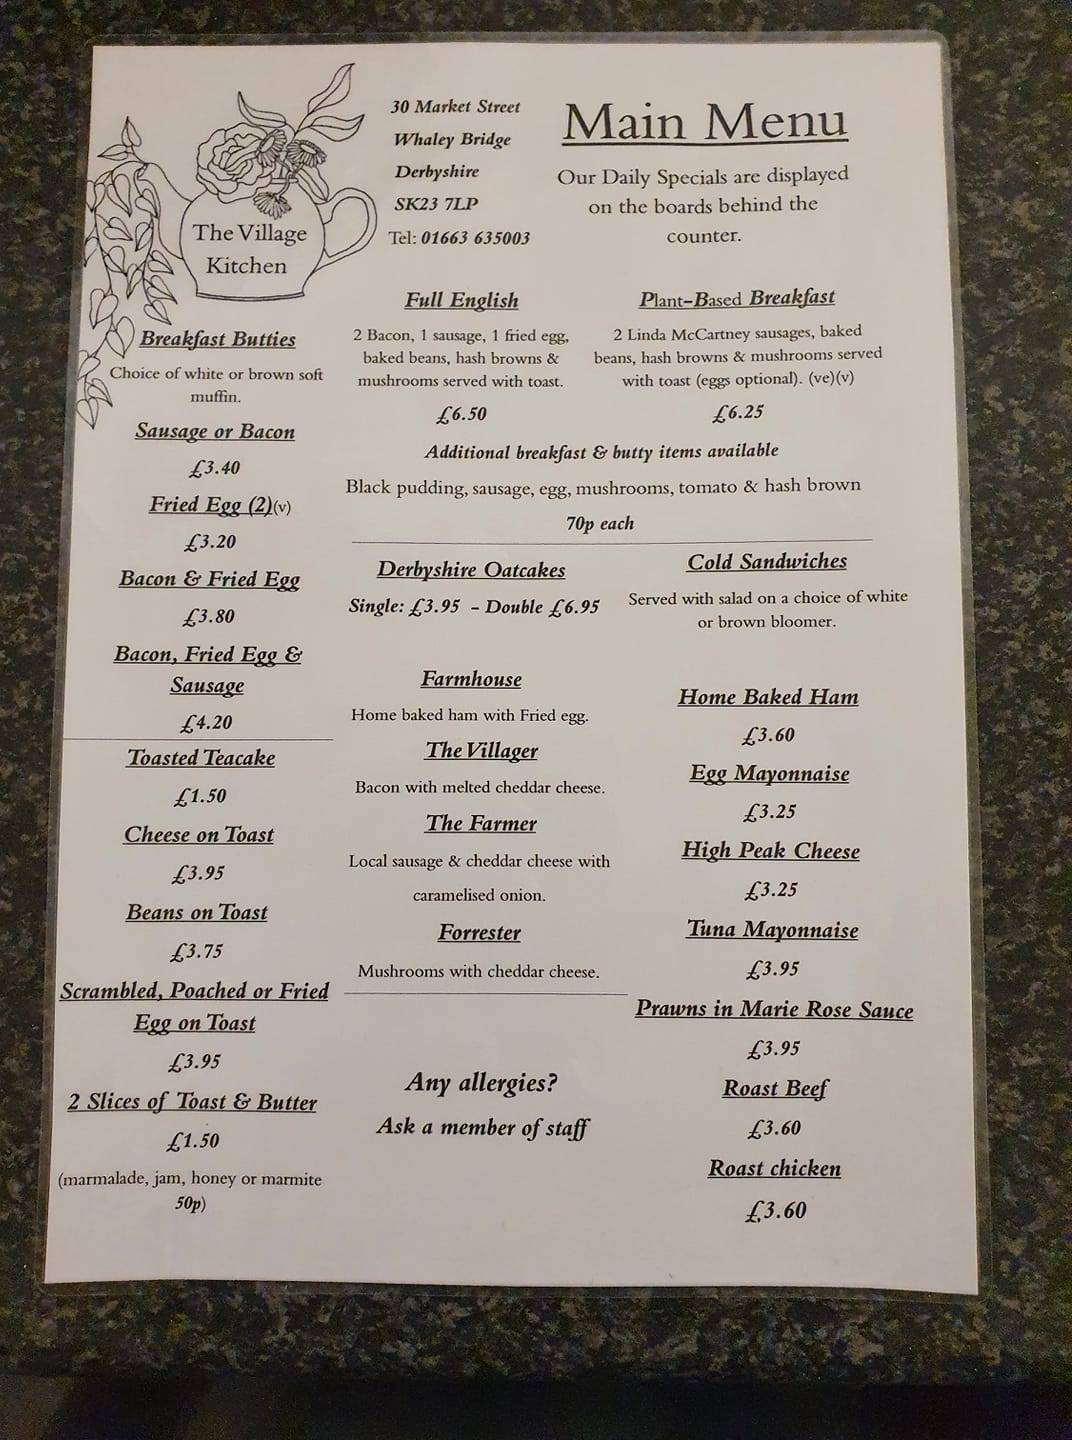 The Village
Kitchen
30 Market Street
Whaley Bridge
Derbyshire
SK23 7LP
Tel: 01663 635003
Main Menu
Our Daily Specials are displayed
on the boards behind the
counter.
Breakfast Butties
Choice of white or brown soft
muffin.
Sausage or Bacon
£3.40
Fried Egg (2)(v)
£3.20
Bacon & Fried Egg
£3.80
Bacon, Fried Egg &
Sausage
£4.20
Toasted Teacake
£1.50
Cheese on Toast
£3.95
Beans on Toast
£3.75
Scrambled, Poached or Fried
Egg on Toast
£3.95
2 Slices of Toast & Butter
£1.50
(marmalade, jam, honey or marmite
50p)
Full English
2 Bacon, 1 sausage, 1 fried egg,
baked beans, hash browns &
mushrooms served with toast.
£6.50
Plant-Based Breakfast
2 Linda McCartney sausages, baked
beans, hash browns & mushrooms served
with toast (eggs optional). (ve)(v)
£6.25
Additional breakfast & butty items available
Black pudding, sausage, egg, mushrooms, tomato & hash brown
70p each
Derbyshire Oatcakes
Single: £3.95 - Double £6.95
Farmhouse
Home baked ham with Fried egg.
The Villager
Bacon with melted cheddar cheese.
The Farmer
Local sausage & cheddar cheese with
caramelised onion.
Forrester
Mushrooms with cheddar cheese.
Any allergies?
Ask a member of staff
Cold Sandwiches
Served with salad on a choice of white
or brown bloomer.
Home Baked Ham
£3.60
Egg Mayonnaise
£3.25
High Peak Cheese
£3.25
Tuna Mayonnaise
£3.95
Prawns in Marie Rose Sauce
£3.95
Roast Beef
£3.60
Roast chicken
£3.60